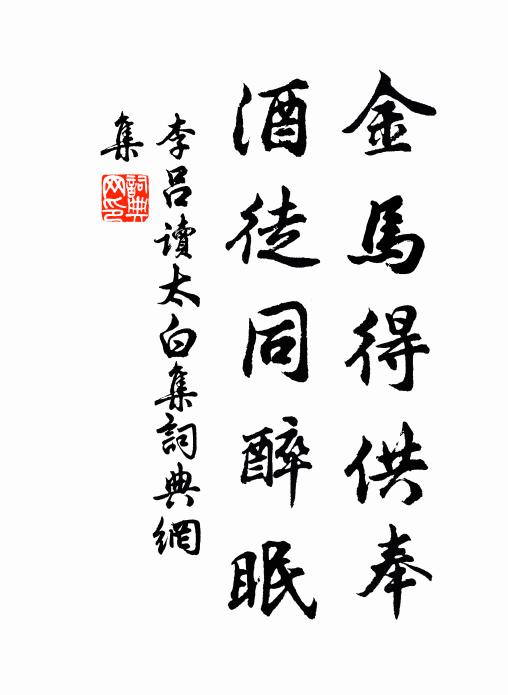 金馬得供奉
酒徒同醉眠
李呂讀太白集詞典網
集
詞典
网印